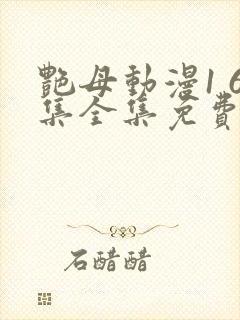 艷母動漫1 6
集全集免費
石醋醋